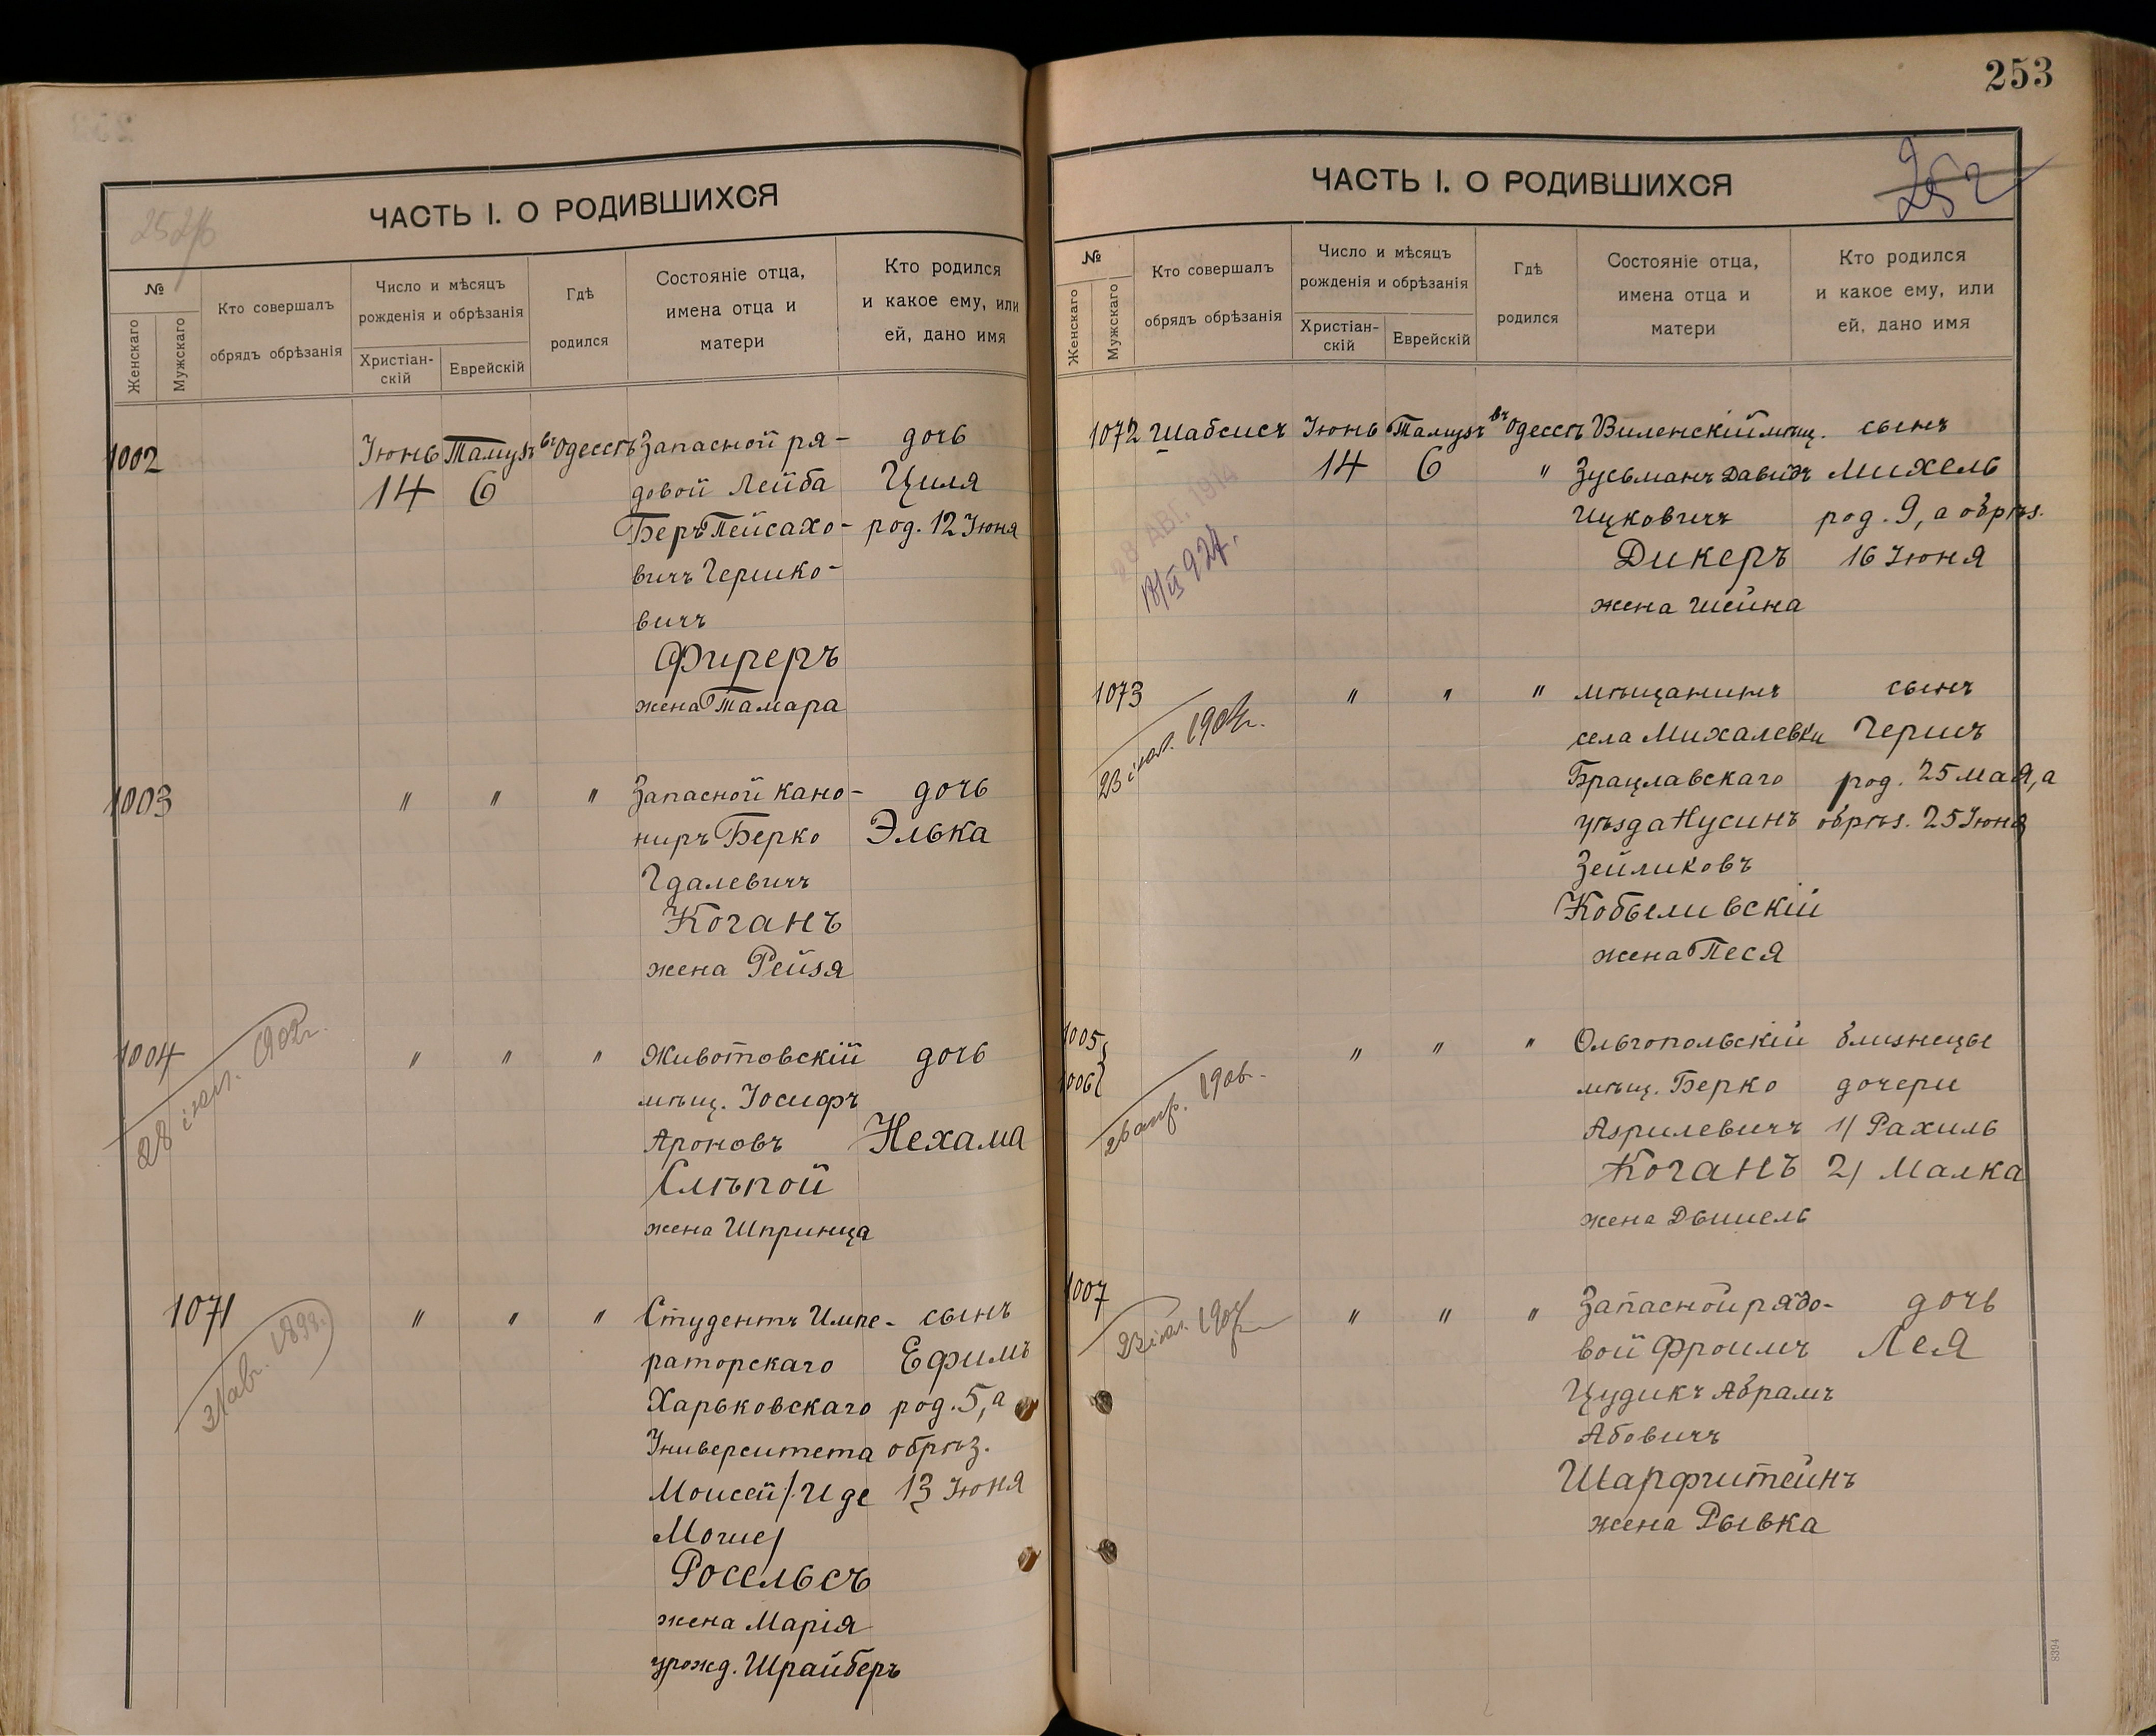 253
ЧАСТЬ I. О РОДИВШИХСЯ
№
Женскаго
Мужскаго
Кто совершалъ
обрядъ обрѣзанія
Число и мѣсяцъ
рожденія и обрѣзанія
Христіан-
скій
Еврейскій
Гдѣ
родился
Состояніе отца,
имена отца и
матери
Кто родился
и какое ему, или
ей, дано имя
1002 Іюнь Тамузъ въ Одессѣ Запасной ря- дочь
14 6 довой Лейба Циля
Беръ Пейсахо- род. 12 Іюня
вичъ Гершко-
вичъ
Фиреръ
жена Тамара
1003 " " " Запасной кано- дочь
ниръ Берко Элька
Гдалевичъ
Коганъ
жена Рейзя
1004 " " " Животовскій дочь
мѣщ. Іосифъ
Ароновъ Нехама
Слѣпой
жена Шпринца
28 іюл. 1902г.
1071 " " " Студентъ Импе- сынъ
раторскаго Ефимъ
Харьковскаго род. 5, а
Университета обрѣз.
Моисей /Иде 13 Іюня
Мошe/
Росельсъ
жена Марія
урожд. Шрайберъ
31 авг. 1899г.
ЧАСТЬ I. О РОДИВШИХСЯ
252
№
Женскаго
Мужскаго
Кто совершалъ
обрядъ обрѣзанія
Число и мѣсяцъ
рожденія и обрѣзанія
Христіан-
скій
Еврейскій
Гдѣ
родился
Состояніе отца,
имена отца и
матери
Кто родился
и какое ему, или
ей, дано имя
1072 Шабсисъ Іюнь Тамузъ въ Одессѣ Виленскій мѣщ. сынъ
14 6 " Зусьманъ Давидъ Михель
Ицковичъ род. 9, а обрѣз.
Дикеръ 16 Іюня
жена Шейна
28 АВГ. 1914
1073 " " " мѣщанинъ сынъ
села Михалевки Гершъ
Брацлавскаго род. 25 мая, а
уѣзда Нусинъ обрѣз. 25 Іюня
Зейликовъ
Кобыливскій
жена Песя
23 іюл.
1005 " " " Ольгопольскій близнецы
1006 мѣщ. Берко дочери
Азрилевичъ 1/ Рахиль
Коганъ 2/ Малка
жена Дышель
1007 " " " Запасной рядо- дочь
вой Фроимъ Лея
Цудикъ Абрамъ
Абовичъ
Шарфштейнъ
жена Рывка
23 іюл.
8394